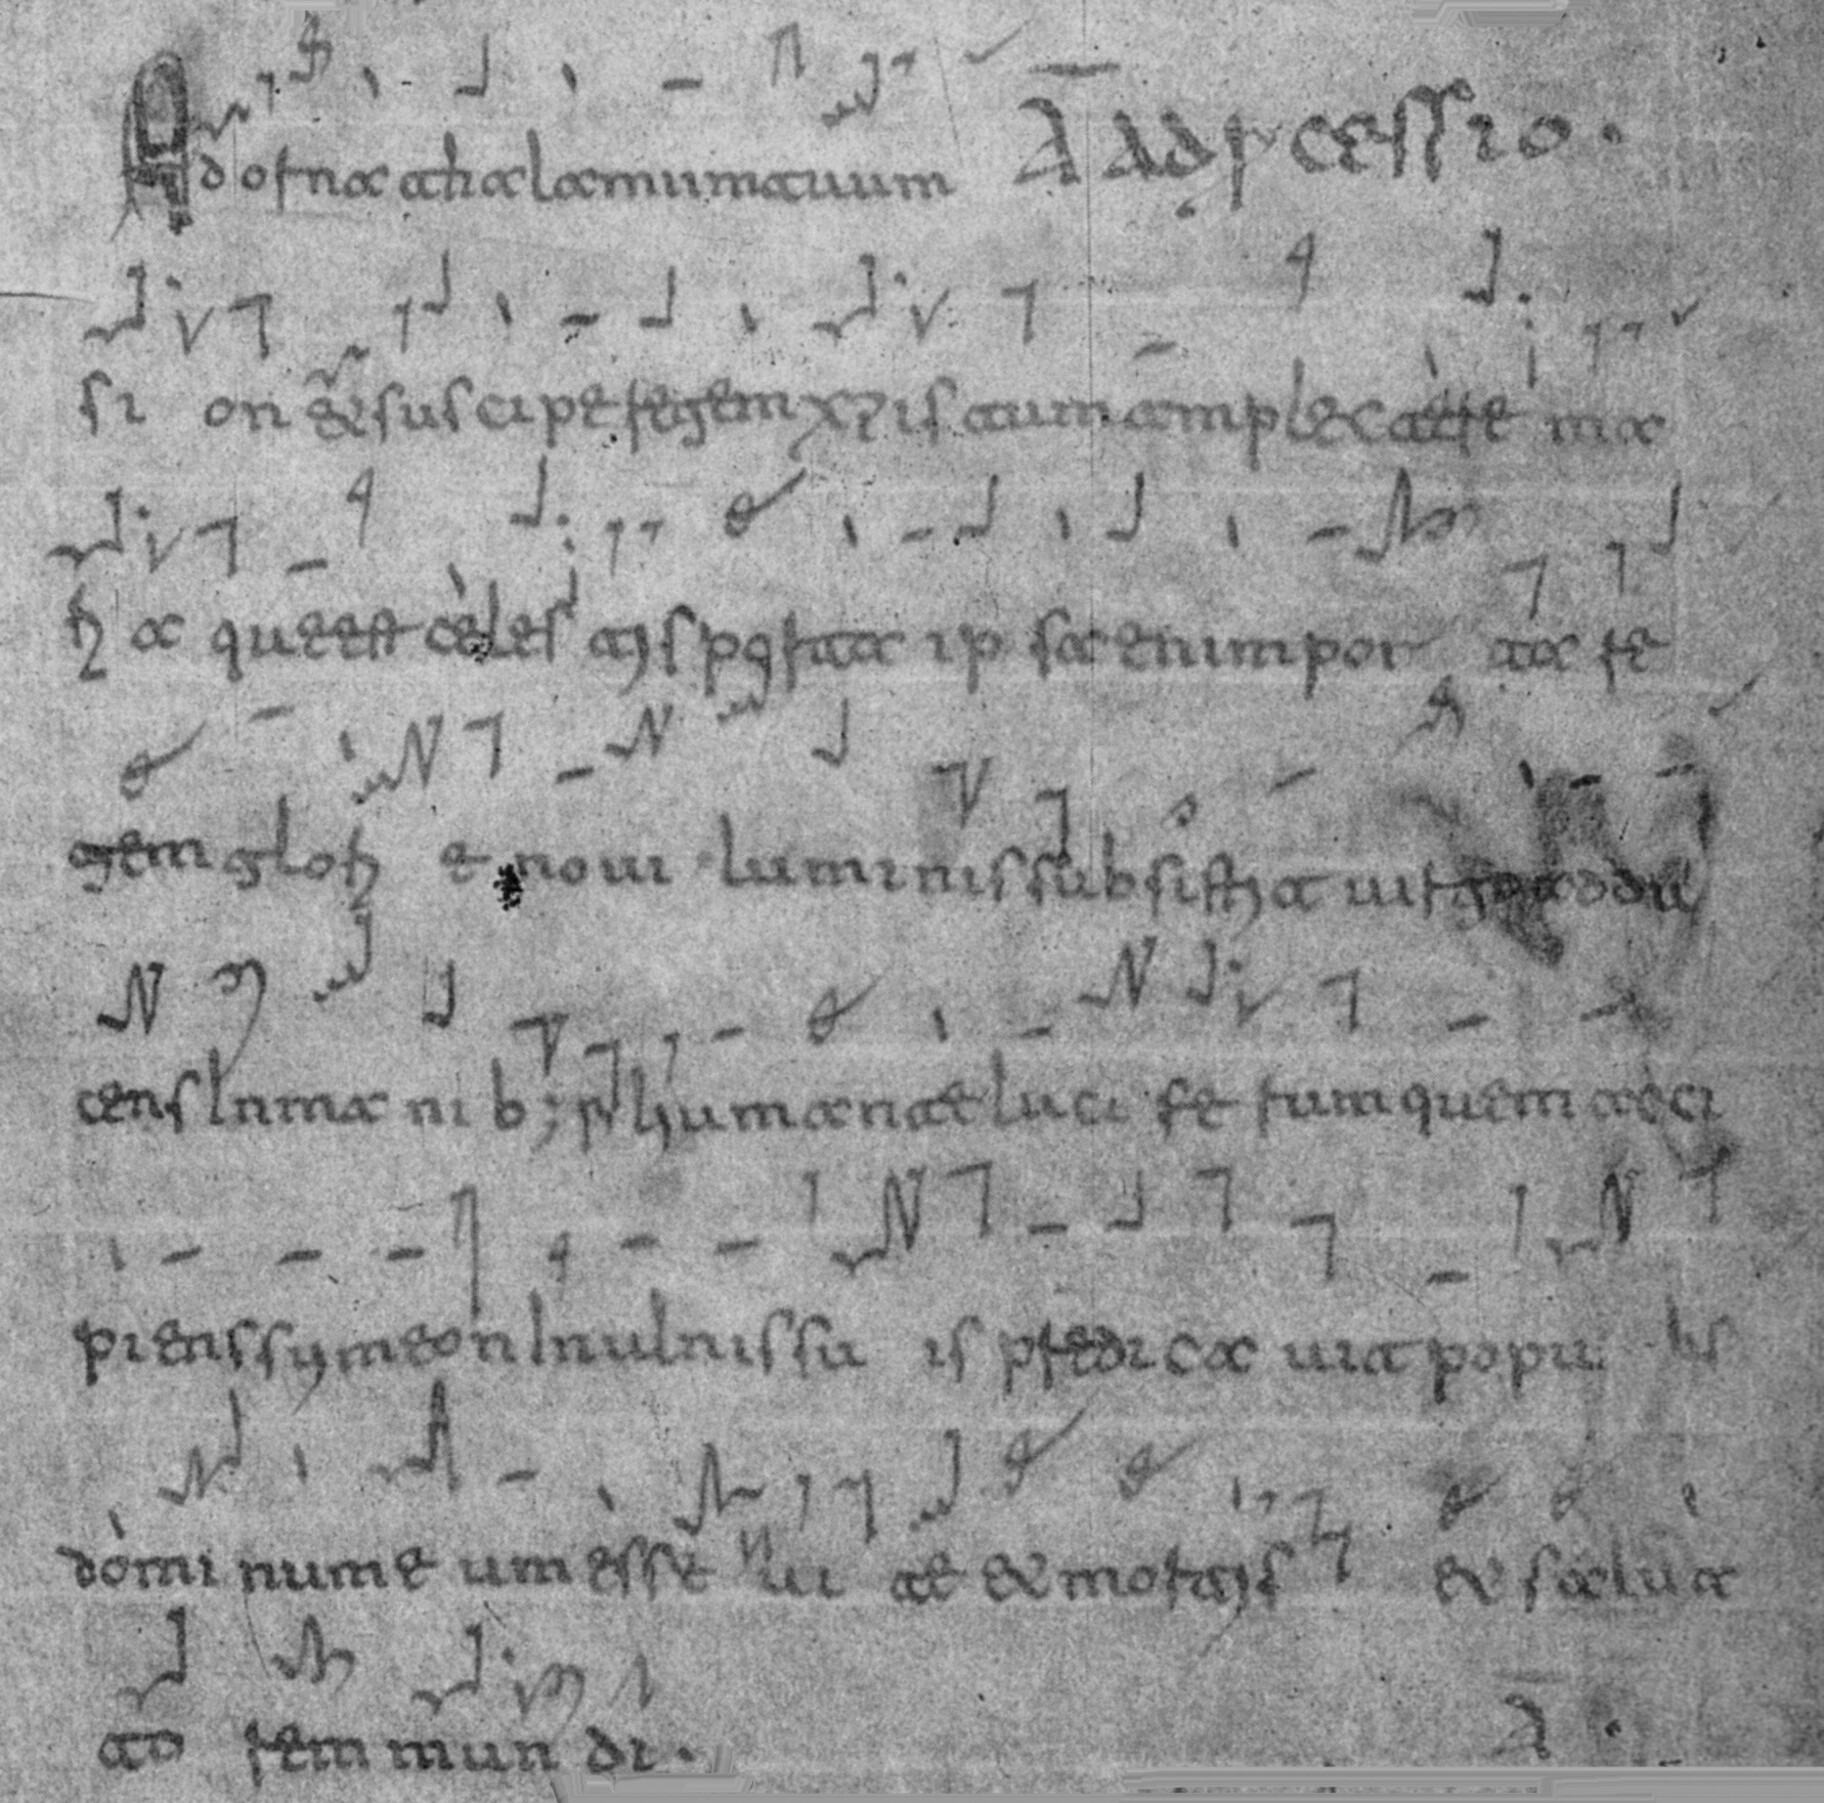 Adorna thalamum tuum A ad p cessio.
si on & suscipe regem xpistum amplectere ma
ri a que est celes tis porta ip sa enim por ta re
gem glori e noui luminis subsistit uirgo addu
cens In ma ni b; filium ante luci fe rum quem acci
piens symeon In ulnis su is predica uit popu lis
dominum e um esse ui te et mortis et salua
to rem mun di. A.